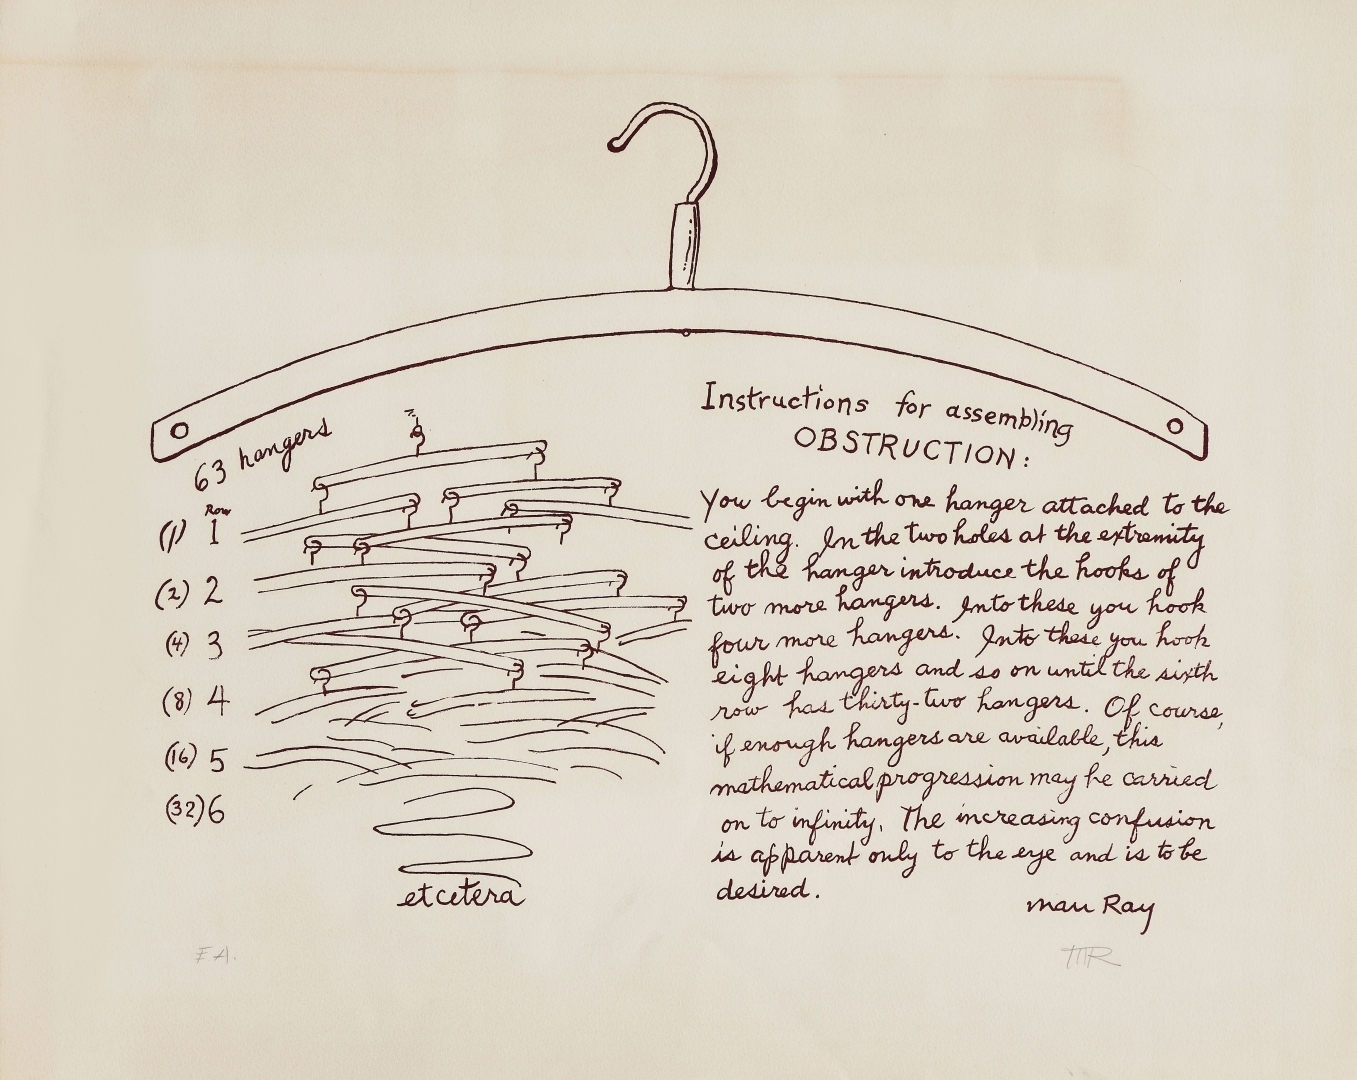 63 hangers
Row
(1) 1
(2) 2
(4) 3
(8) 4
(16) 5
(32) 6
et cetera
Instructions for assembling
OBSTRUCTION:
You begin with one hanger attached to the
ceiling. In the two holes at the extremity
of the hanger introduce the hooks of
two more hangers. Into these you hook
four more hangers. Into these you hook
eight hangers and so on until the sixth
row has thirty-two hangers. Of course,
if enough hangers are available, this
mathematical progression may be carried
on to infinity. The increasing confusion
is apparent only to the eye and is to be
desired.
man Ray
E.A.
MR